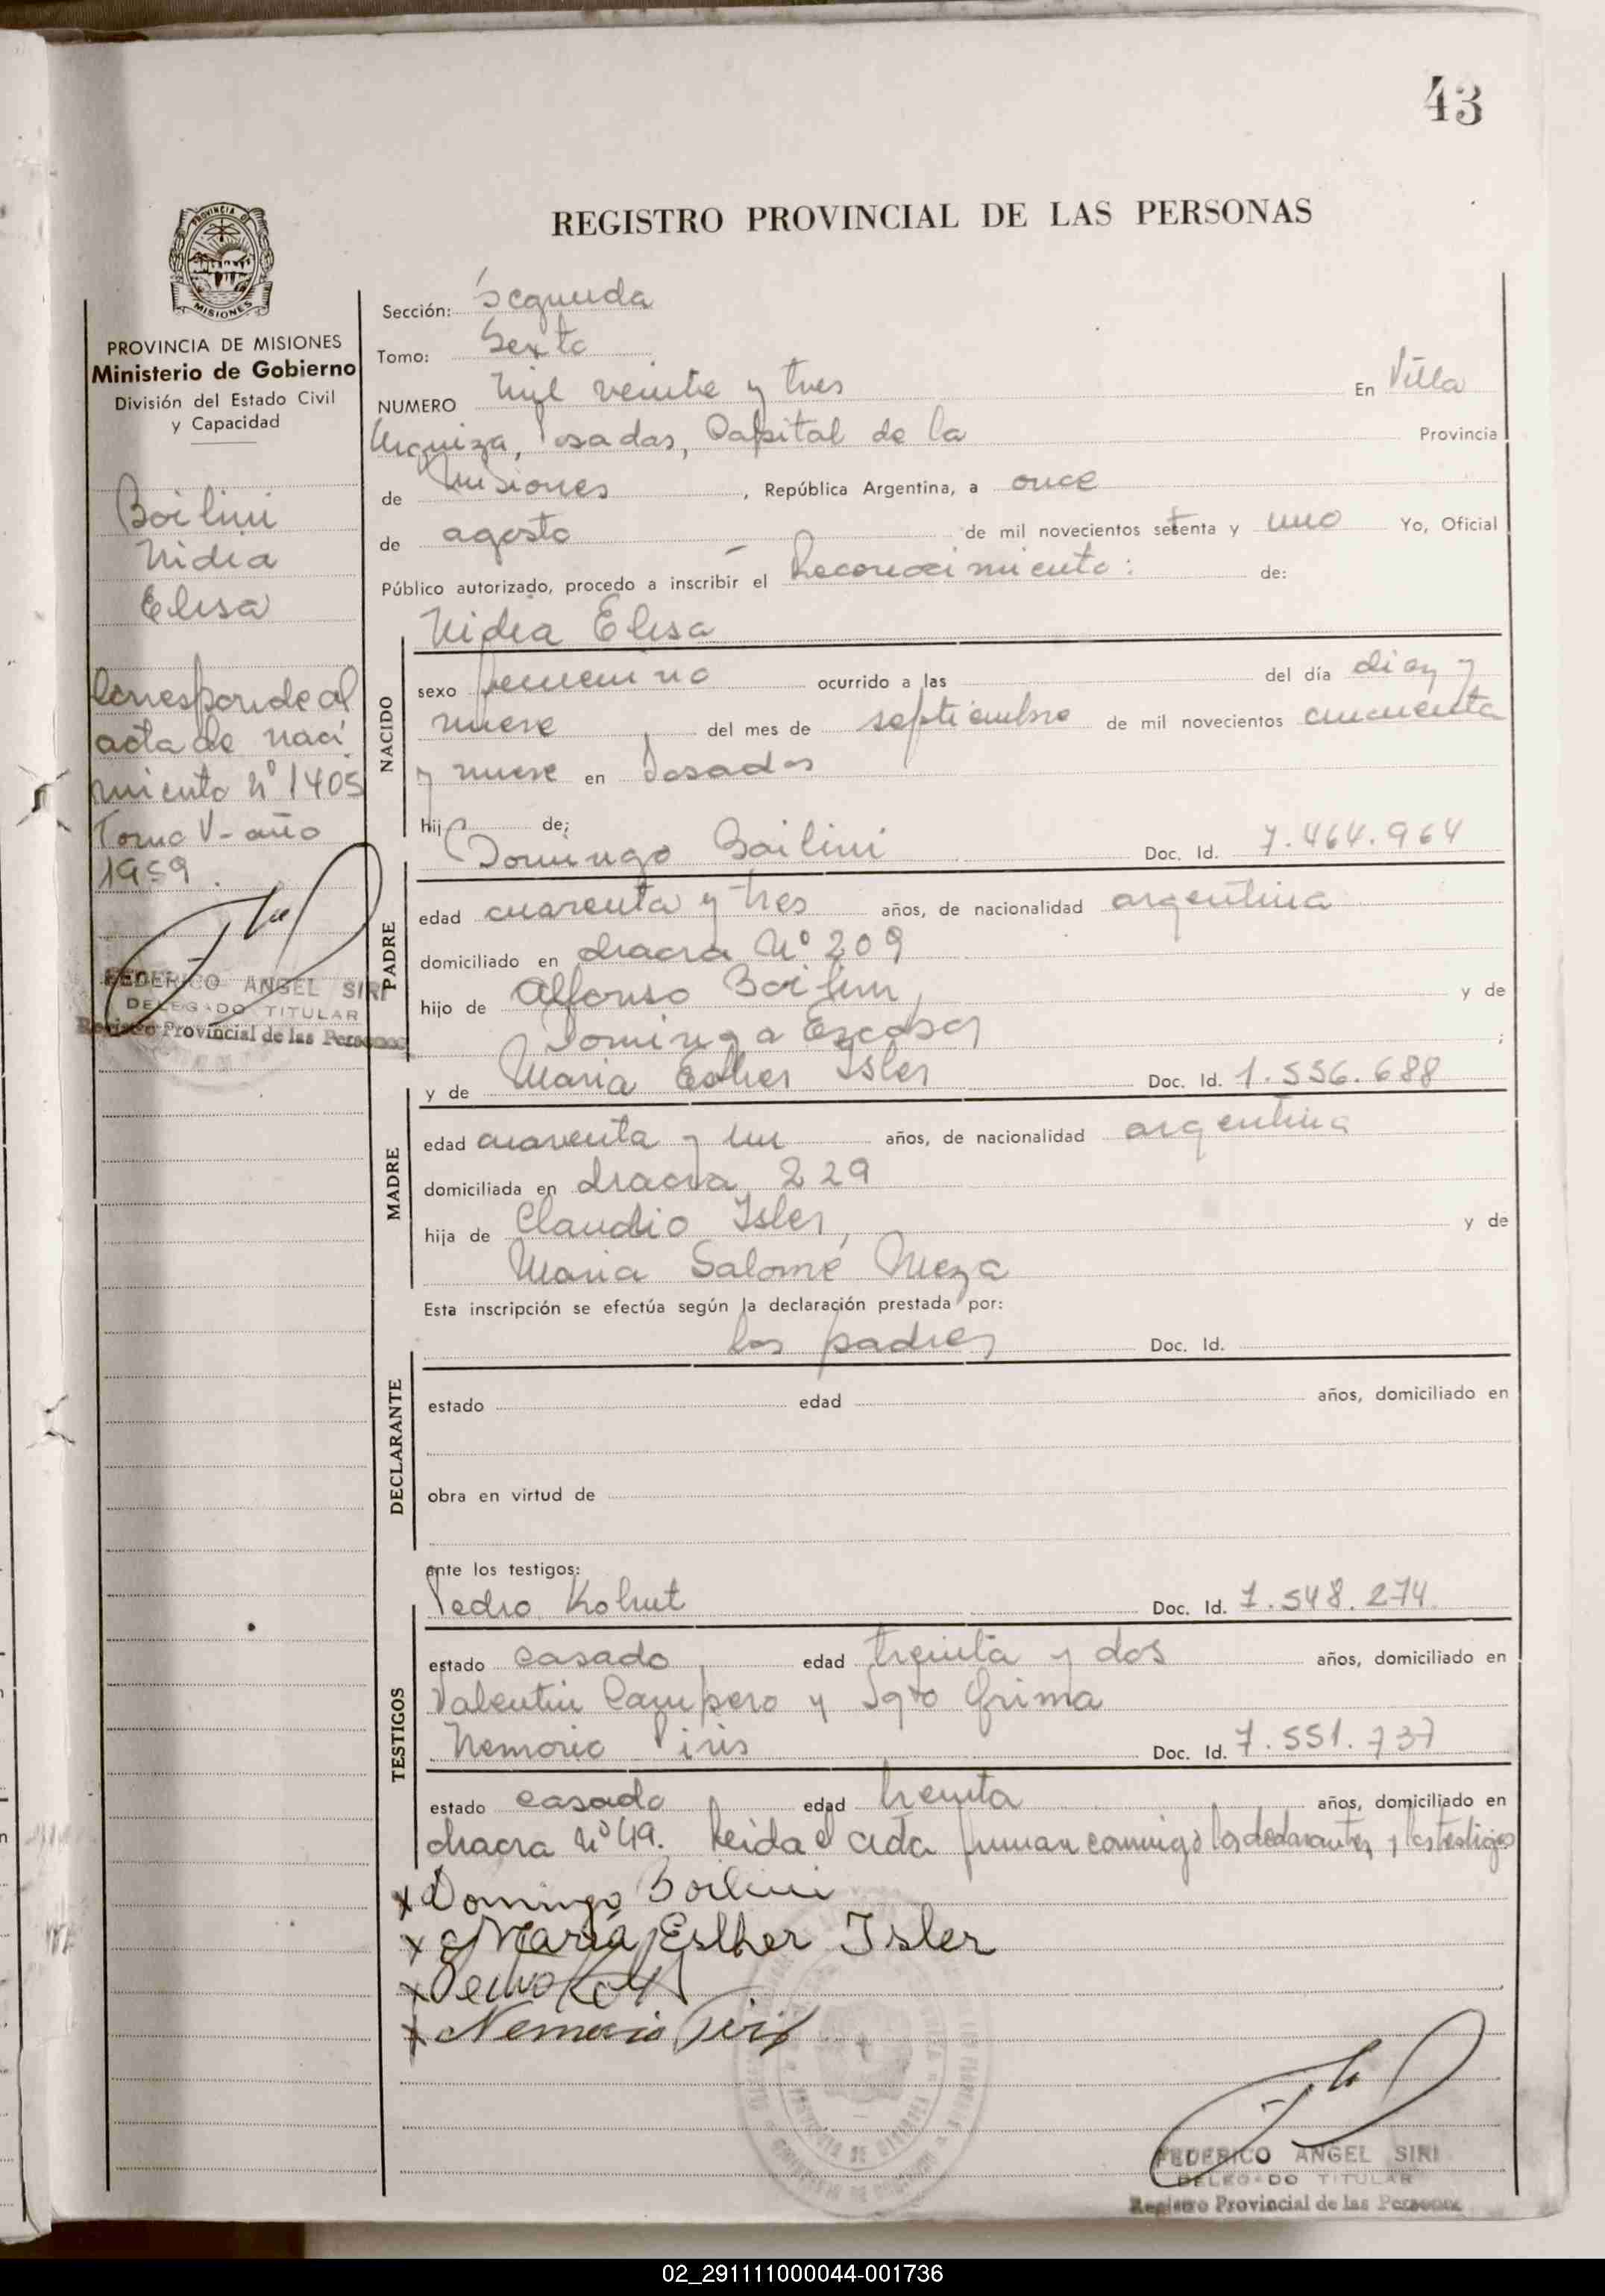 43
REGISTRO PROVINCIAL DE LAS PERSONAS
PROVINCIA DE MISIONES
MISIONES
PROVINCIA DE MISIONES
Ministerio de Gobierno
División del Estado Civil
y Capacidad
Boilini
Nidia
Elisa
Corresponde al
acta de naci
miento Nº 1405
Tomo V - año
1959.
FEDERICO ANGEL SIRI
DELEGADO TITULAR
Registro Provincial de las Personas
Sección: Segunda
Tomo: Sexto
NUMERO Mil veinte y tres En Villa
Urquiza, Posadas, Capital de la Provincia
de Misiones, República Argentina, a once
de agosto de mil novecientos setenta y uno Yo, Oficial
Público autorizado, procedo a inscribir el Reconocimiento: de:
Nidia Elisa
NACIDO
sexo femenino ocurrido a las del día diez y
nueve del mes de septiembre de mil novecientos cincuenta
y nueve en Posadas
hija de:
Domingo Boilini Doc. Id. 7.464.964
PADRE
edad cuarenta y tres años, de nacionalidad argentina
domiciliado en chacra Nº 209
hijo de Alfonso Boilini, y de
Dominga Escobar ;
y de Maria Esther Isler Doc. Id. 1.556.688
MADRE
edad cuarenta y un años, de nacionalidad argentina
domiciliada en chacra 229
hija de Claudio Isler, y de
Maria Salomé Meza
Esta inscripción se efectúa según la declaración prestada por:
los padres Doc. Id.
DECLARANTE
estado edad años, domiciliado en
obra en virtud de
ante los testigos:
Pedro Kohut Doc. Id. 7.548.274
TESTIGOS
estado casado edad treinta y dos años, domiciliado en
Valentin Campero y Sgto
Nemorio Piris Doc. Id. 7.551.737
estado casado edad treinta años, domiciliado en
chacra Nº 49. Leida el acta firman conmigo los declarantes y los testigos
x Domingo Boilini
x Maria Esther Isler
x
x Nemorio Piris
FEDERICO ANGEL SIRI
DELEGADO TITULAR
Registro Provincial de las Personas
02_291111000044-001736